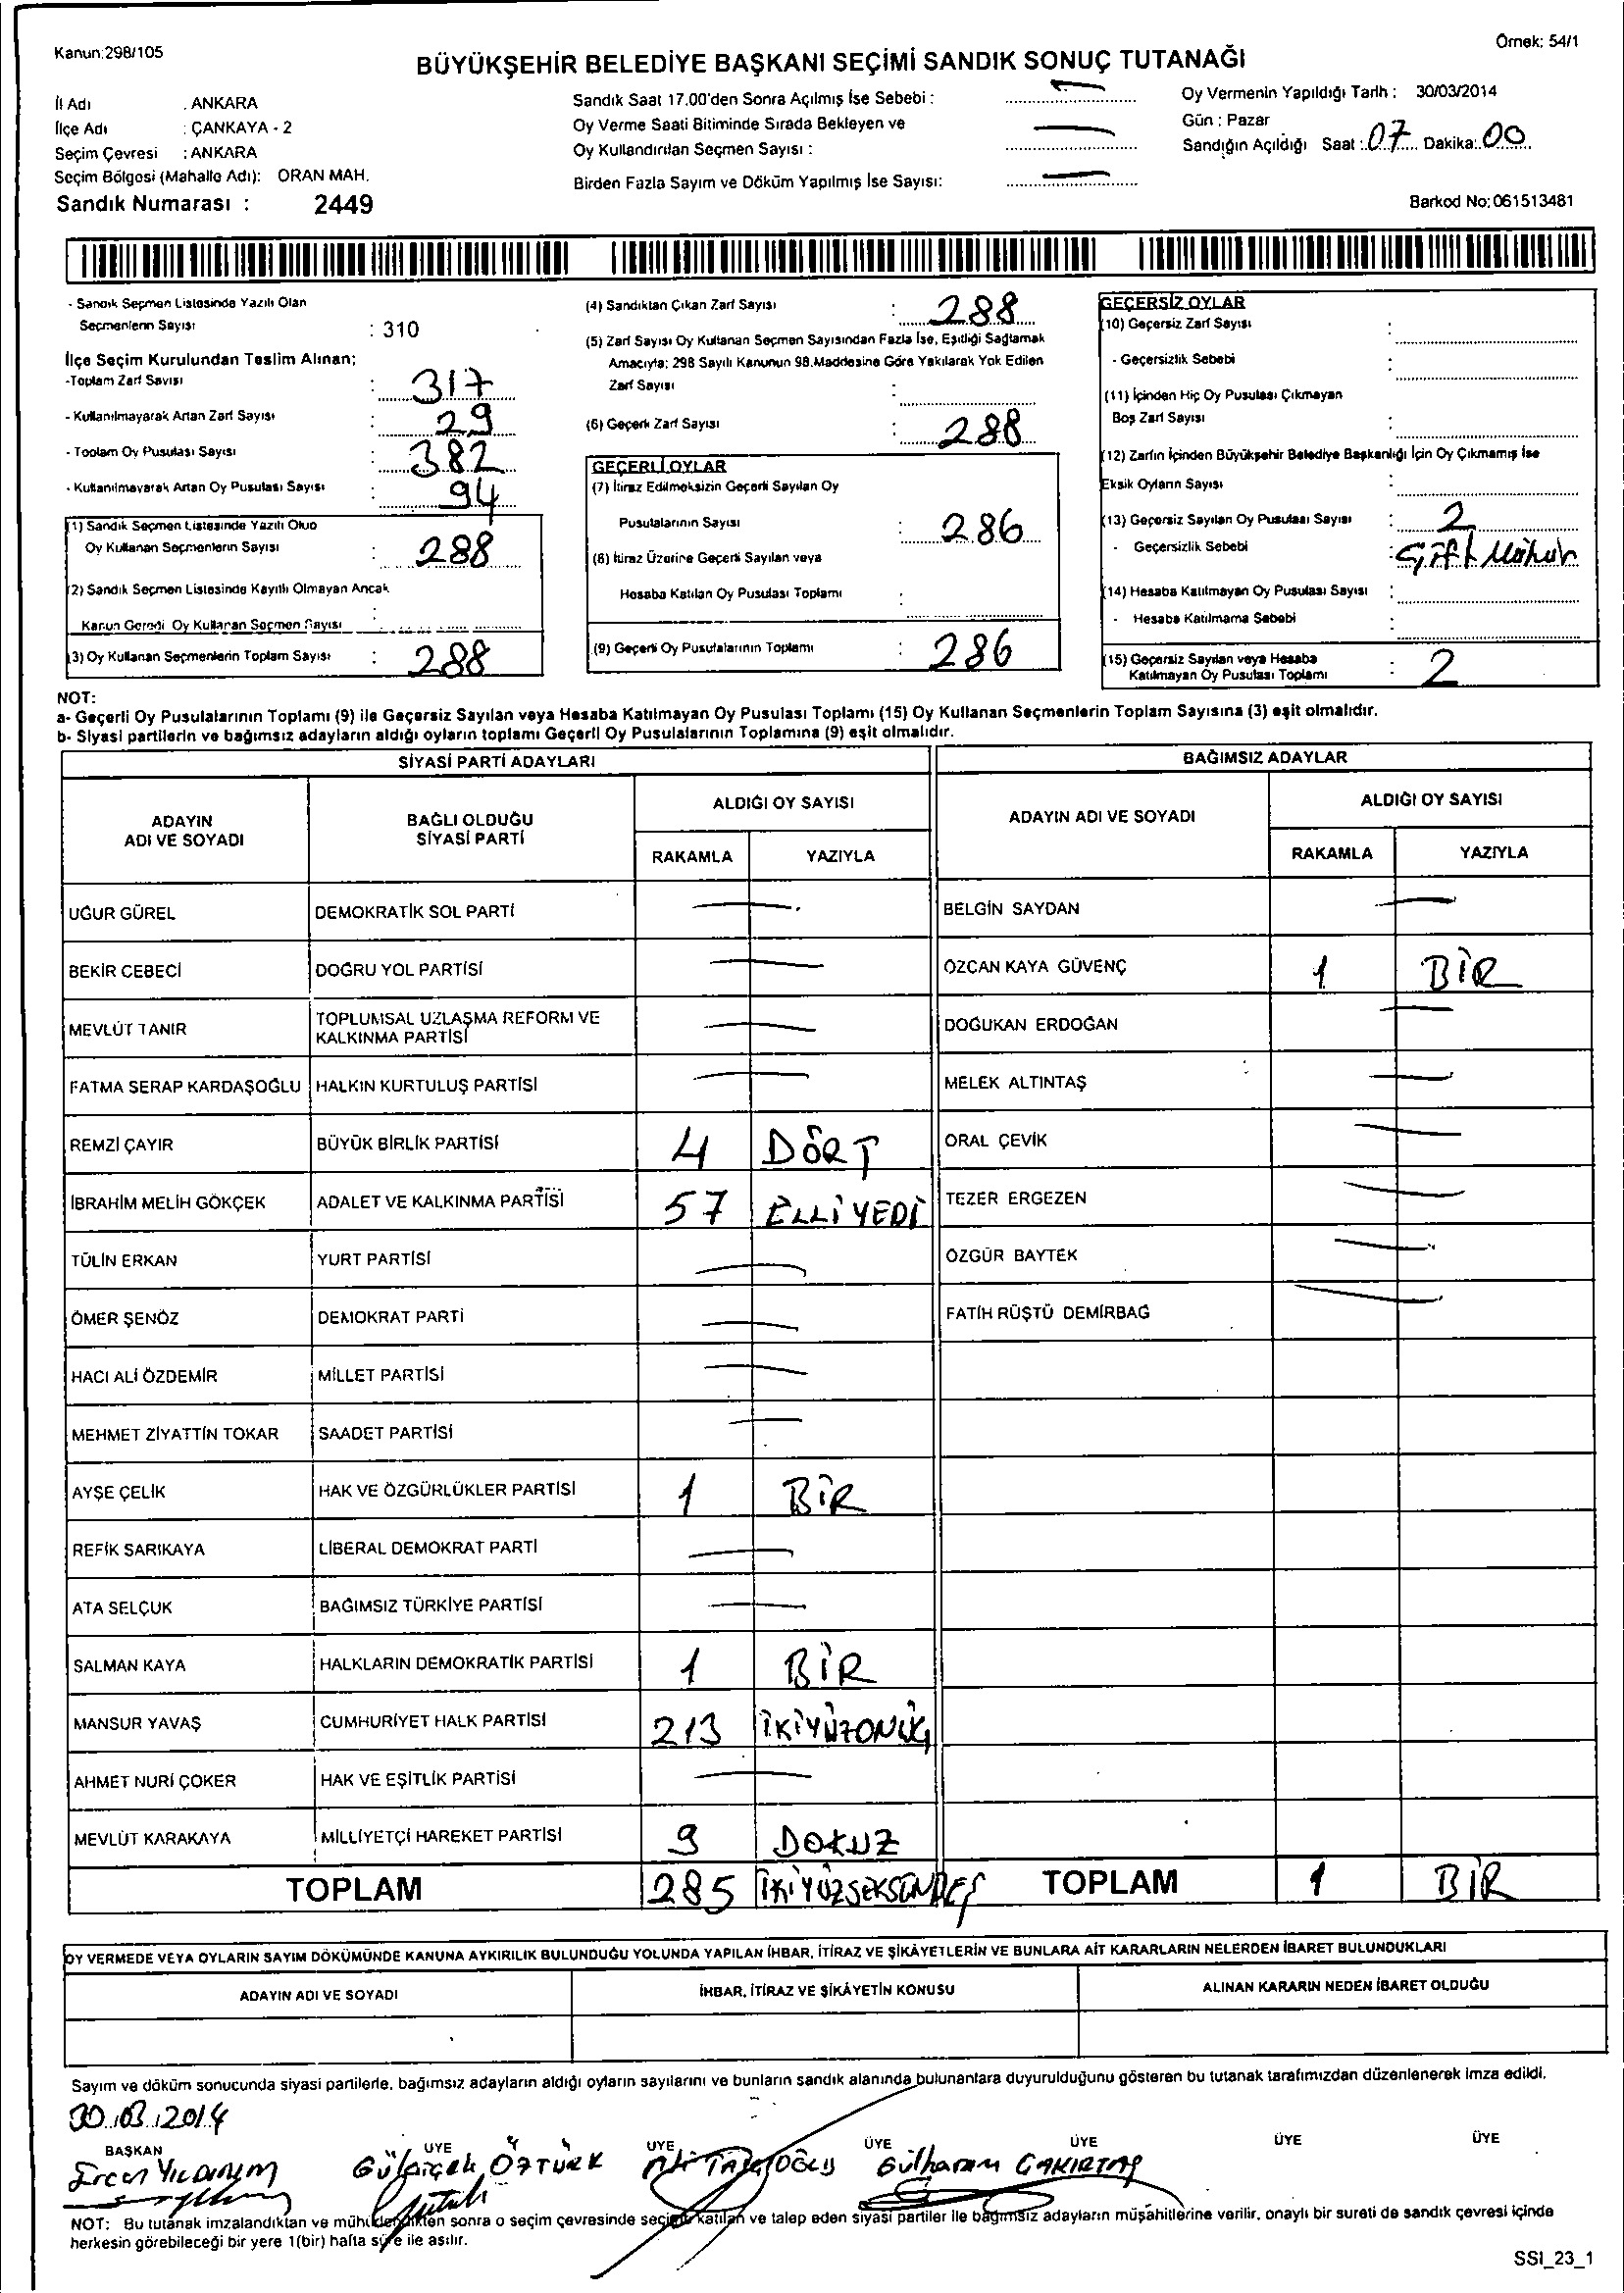 Kanun:298/105
Örnek: 54/1
BÜYÜKŞEHİR BELEDİYE BAŞKANI SEÇİMİ SANDIK SONUÇ TUTANAĞI
İl Adı : ANKARA
İlçe Adı : ÇANKAYA - 2
Seçim Çevresi : ANKARA
Seçim Bölgesi (Mahalle Adı): ORAN MAH.
Sandık Numarası : 2449
Sandık Saat 17.00'den Sonra Açılmış İse Sebebi : —
Oy Verme Saati Bitiminde Sırada Bekleyen ve
Oy Kullandırılan Seçmen Sayısı : —
Birden Fazla Sayım ve Döküm Yapılmış İse Sayısı: —
Oy Vermenin Yapıldığı Tarih : 30/03/2014
Gün : Pazar
Sandığın Açıldığı Saat : 07 Dakika: 00
Barkod No: 061513481
- Sandık Seçmen Listesinde Yazılı Olan
Seçmenlerin Sayısı : 310
İlçe Seçim Kurulundan Teslim Alınan;
-Toplam Zarf Sayısı : 317
- Kullanılmayarak Artan Zarf Sayısı : 29
- Toplam Oy Pusulası Sayısı : 382
- Kullanılmayarak Artan Oy Pusulası Sayısı : 94
(1) Sandık Seçmen Listesinde Yazılı Olup
Oy Kullanan Seçmenlerin Sayısı : 288
(2) Sandık Seçmen Listesinde Kayıtlı Olmayan Ancak
Kanun Gereği Oy Kullanan Seçmen Sayısı :
(3) Oy Kullanan Seçmenlerin Toplam Sayısı : 288
(4) Sandıktan Çıkan Zarf Sayısı : 288
(5) Zarf Sayısı Oy Kullanan Seçmen Sayısından Fazla İse, Eşitliği Sağlamak
Amacıyla; 298 Sayılı Kanunun 98.Maddesine Göre Yakılarak Yok Edilen
Zarf Sayısı :
(6) Geçerli Zarf Sayısı : 288
GEÇERLİ OYLAR
(7) İtiraz Edilmeksizin Geçerli Sayılan Oy
Pusulalarının Sayısı : 286
(8) İtiraz Üzerine Geçerli Sayılan veya
Hesaba Katılan Oy Pusulası Toplamı :
(9) Geçerli Oy Pusulalarının Toplamı : 286
GEÇERSİZ OYLAR
(10) Geçersiz Zarf Sayısı :
- Geçersizlik Sebebi :
(11) İçinden Hiç Oy Pusulası Çıkmayan
Boş Zarf Sayısı :
(12) Zarfın İçinden Büyükşehir Belediye Başkanlığı İçin Oy Çıkmamış İse
Eksik Oyların Sayısı :
(13) Geçersiz Sayılan Oy Pusulası Sayısı : 2
- Geçersizlik Sebebi : Çift Mühür
(14) Hesaba Katılmayan Oy Pusulası Sayısı :
- Hesaba Katılmama Sebebi :
(15) Geçersiz Sayılan veya Hesaba
Katılmayan Oy Pusulası Toplamı : 2
NOT:
a- Geçerli Oy Pusulalarının Toplamı (9) ile Geçersiz Sayılan veya Hesaba Katılmayan Oy Pusulası Toplamı (15) Oy Kullanan Seçmenlerin Toplam Sayısına (3) eşit olmalıdır.
b- Siyasi partilerin ve bağımsız adayların aldığı oyların toplamı Geçerli Oy Pusulalarının Toplamına (9) eşit olmalıdır.
SİYASİ PARTİ ADAYLARI
ADAYIN ADI VE SOYADI BAĞLI OLDUĞU SİYASİ PARTİ ALDIĞI OY SAYISI
RAKAMLA YAZIYLA
UĞUR GÜREL DEMOKRATİK SOL PARTİ —
BEKİR CEBECİ DOĞRU YOL PARTİSİ —
MEVLÜT TANIR TOPLUMSAL UZLAŞMA REFORM VE KALKINMA PARTİSİ —
FATMA SERAP KARDAŞOĞLU HALKIN KURTULUŞ PARTİSİ —
REMZİ ÇAYIR BÜYÜK BİRLİK PARTİSİ 4 DÖRT
İBRAHİM MELİH GÖKÇEK ADALET VE KALKINMA PARTİSİ 57 ELLİ YEDİ
TÜLİN ERKAN YURT PARTİSİ —
ÖMER ŞENÖZ DEMOKRAT PARTİ —
HACI ALİ ÖZDEMİR MİLLET PARTİSİ —
MEHMET ZİYATTİN TOKAR SAADET PARTİSİ —
AYŞE ÇELİK HAK VE ÖZGÜRLÜKLER PARTİSİ 1 BİR
REFİK SARIKAYA LİBERAL DEMOKRAT PARTİ —
ATA SELÇUK BAĞIMSIZ TÜRKİYE PARTİSİ —
SALMAN KAYA HALKLARIN DEMOKRATİK PARTİSİ 1 BİR
MANSUR YAVAŞ CUMHURİYET HALK PARTİSİ 213 İKİYÜZONÜÇ
AHMET NURİ ÇOKER HAK VE EŞİTLİK PARTİSİ —
MEVLÜT KARAKAYA MİLLİYETÇİ HAREKET PARTİSİ 9 DOKUZ
TOPLAM 285 İKİYÜZSEKSENBEŞ
BAĞIMSIZ ADAYLAR
ADAYIN ADI VE SOYADI ALDIĞI OY SAYISI
RAKAMLA YAZIYLA
BELGİN SAYDAN —
ÖZCAN KAYA GÜVENÇ 1 BİR
DOĞUKAN ERDOĞAN —
MELEK ALTINTAŞ —
ORAL ÇEVİK —
TEZER ERGEZEN —
ÖZGÜR BAYTEK —
FATİH RÜŞTÜ DEMİRBAĞ —
TOPLAM 1 BİR
OY VERMEDE VEYA OYLARIN SAYIM DÖKÜMÜNDE KANUNA AYKIRILIK BULUNDUĞU YOLUNDA YAPILAN İHBAR, İTİRAZ VE ŞİKÂYETLERİN VE BUNLARA AİT KARARLARIN NELERDEN İBARET BULUNDUKLARI
ADAYIN ADI VE SOYADI İHBAR, İTİRAZ VE ŞİKÂYETİN KONUSU ALINAN KARARIN NEDEN İBARET OLDUĞU
Sayım ve döküm sonucunda siyasi partilerle, bağımsız adayların aldığı oyların sayılarını ve bunların sandık alanında bulunanlara duyurulduğunu gösteren bu tutanak tarafımızdan düzenlenerek imza edildi.
30.03.2014
BAŞKAN ÜYE ÜYE ÜYE ÜYE ÜYE ÜYE
Ercan YILDIRIM Gülçiçek ÖZTÜRK Gülharam ÇAKIRTAŞ
NOT: Bu tutanak imzalandıktan ve mühürlendikten sonra o seçim çevresinde seçime katılan ve talep eden siyasi partiler ile bağımsız adayların müşahitlerine verilir, onaylı bir sureti de sandık çevresi içinde
herkesin görebileceği bir yere 1(bir) hafta süre ile asılır.
SSI_23_1